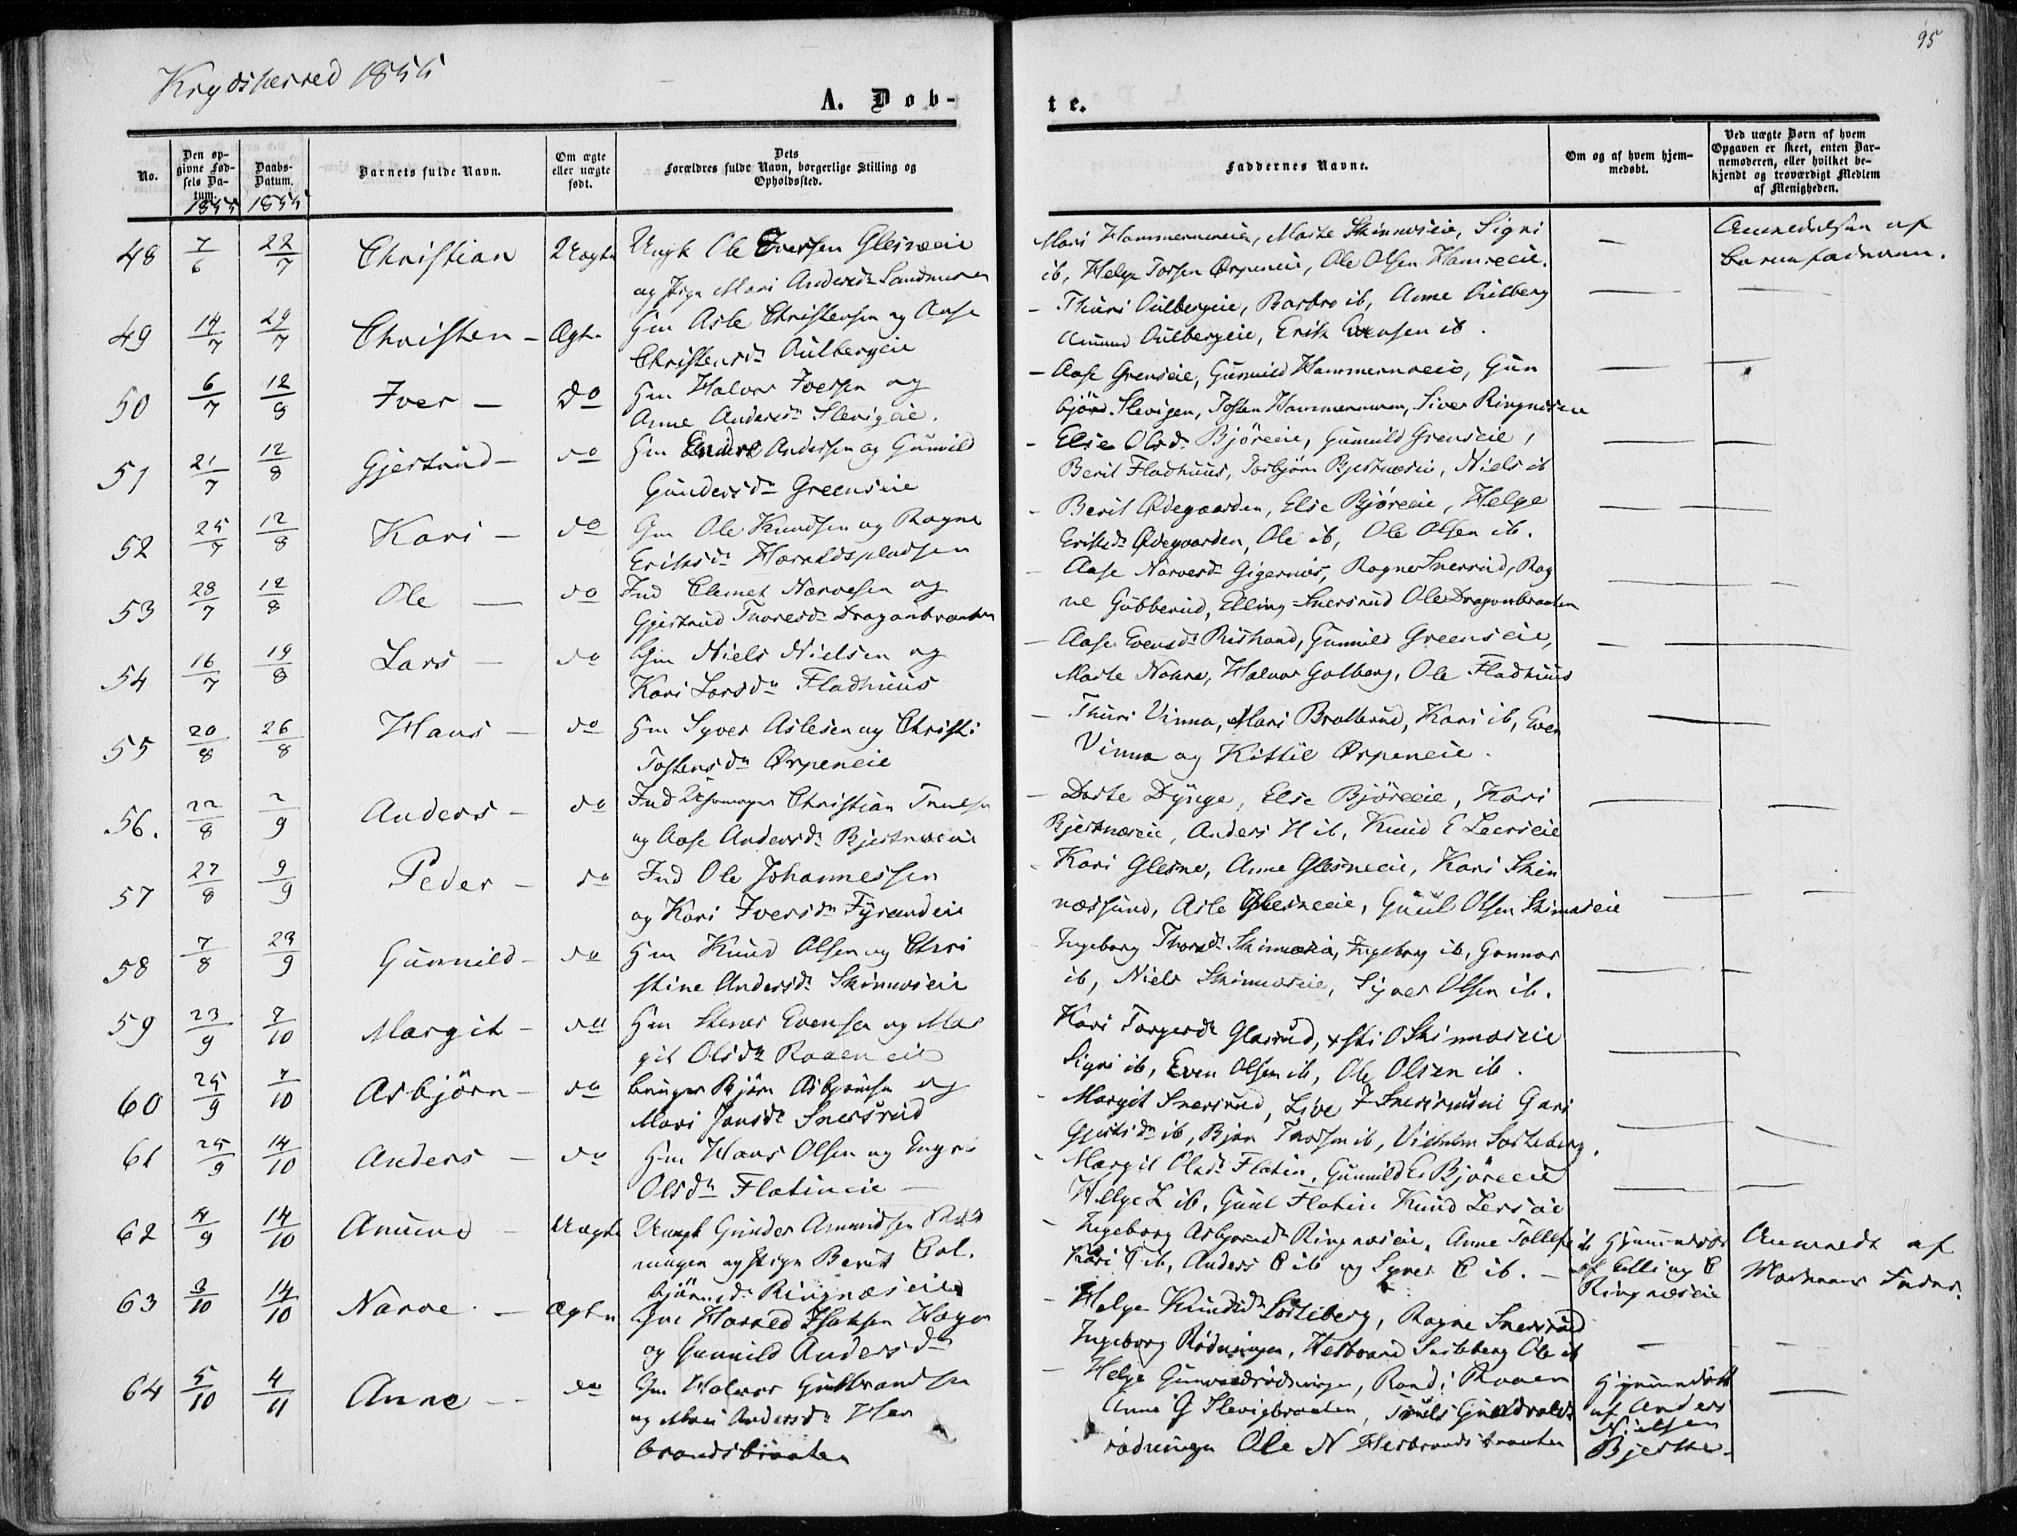 95
Krydsherred 1855
A. Døb-
te.
No.
Den op-
givne Fød-
sels Da-
tum.
1855
Daabs-
Datum.
1855
Barnets fulde Navn.
Om ægte
eller uægte
født.
Dets
Forældres fulde Navn, borgerlige Stilling og
Opholdssted.
Faddernes Navne.
Om og af hvem hjem-
medøbt.
Ved uægte Børn af hvem
Opgaven er skeet, enten Bar-
nemoderen, eller hvilket be-
kjendt og troværdigt Medlem
af Menigheden.
48 7/6 22/7 Christian Uægte Ungk Ole Iversen Glesneeie
og Pige Mari Andersdr
Mari Hammerneie, Marte Skinneseie, Sigri
ib, Helge Torsen Ørpeneie, Ole Olsen Hamreeie.
— Anmeldelsen af
barnefaderen.
49 14/7 29/7 Christen – Ægte Hm Asle Christensen og Aase
Christensdr Aulbergeie
– Thuri Aulbergeie, Barbro ib, Anne Aulberg
Amund Aulbergeie, Erik Evensen ib.
50 6/7 12/8 Iver – do Hm Halvor Iversen og
Anne Andersdr Slevigeie.
– Aase Grenseie, Gunnild Hammerneie, Gun
bjørd Slevigen, Tosten Hammeren, Siver Ringnes
51 21/7 12/8 Gjertrud – do Hm Endre Andersen og Gunnild
Gundersdr Greenseie
– Elsie Olsdr Bjøreeie, Gunnild Grenseie,
Berit Fladhuus, Torbjørn Bjertneseie, Niels ib
52 25/7 12/8 Kari – do Gm Ole Knudsen og Ragne
Eriksdr Haraldspladsen
– Berit Ødegaarden, Else Bjøreeie, Helge
Eriksdr Ødegaarden, Ole ib, Ole Olsen ib.
53 28/7 12/8 Ole — do Ind Clemet Narvesen og
Gjertrud Thoresdr Dragonbraaten
– Aase Narvesdr Gigernæs, Ragne Snersrud, Rag
ne Gubberud, Elling Snersrud Ole Dragonbraaten
54 16/7 19/8 Lars – do Gm Niels Nielsen og
Kari Larsdr Fladhuus
– Aase Evensdr Ristrand, Gunnild Greenseie,
Marte Nohre, Halvor Golberg, Ole Fladhuus
55 20/8 26/8 Hans – do Hm Syver Aslesen og Christi
Tostensdr Ørpeneie
– Thuri Vinna, Mari Brattrud, Kari ib, Even
Vinna og Kittil Ørpeneie.
56. 22/8 2/9 Anders – do Ind Christian Truls
og Aase Andersdr Bjertneseie
– Dorte Dynge, Else Bjøreeie, Kari
Bjertneseie, Anders H ib, Knud E Leerseie
57 27/8 9/9 Peder – do Ind Ole Johannessen
og Kari Iversdr Fyrandeie
– Kari Glesne, Anne Glesneeie, Kari Skin
nessund, Asle Glesneeie, Guul Olsen Skinneseie
58 7/8 23/9 Gunnild – do Hm Knud Olsen og Chri
stine Andersdr Skinneseie
– Ingeborg Thorsdr, Ingeborg ib, Gunnar
ib, Niels Skinneseie, Syver Olsen ib.
59 23/9 7/10 Margit – do Hm Stener Evensen og Mar
git Olsdr Raaen eie
Kari Torgersdr Glasrud, Xsti O Skinneseie
Sigri ib, Even Olsen ib, Ole Olsen ib.
60 25/9 7/10 Asbjörn – do bruger Bjørn Asbjørnsen og
Mari Jonsdr Snersrud
– Margit Snersrud, Live Gari
Gjertsdr ib, Bjørn Thorsen ib, Vilhelm Sorteberg.
61 25/9 14/10 Anders – do Hm Hans Olsen og Engri
Olsdr Flatineie —
– Margit Olsdr Flatin, Gunnild E Bjøreeie
Helge L ib, Guul Flatin Knud Lerseie
62 4/9 14/10 Amund – Uægte Ungk Gunder Amundsen Rød
ningen og Pige Berit Col.
bjørnsdr Ringnæseie
– Ingeborg Asbjørnsdr Ringneseie, Anne Tollefs ib
Kari T ib, Anders E ib og Syver E ib. –
Hjemmedøbt
af Elling E
Ringneseie
Anmeldt af
Moderens Fader.
63 3/10 14/10 Narve – Ægte Gm Harald Isaksen Hage
og Gunnild Andersdr
– Helge Knudsdr Sorteberg, Ragne Snersrud
Ingeborg Rødningen, Halvoard Sorteberg Ole ib
64 5/10 4/11 Anne – do Gm Halvor Gulbrandsen
og Mari Andersdr Her
brandsbraaten
– Helge Gunvaldrødningen, Randi Raaen
Anne G Slevigbraaten, Truls Gunvalds
rødningen Ole N Herbrandsbraaten
Hjemmedøbt
af Anders
Nielsen
Bjerke.